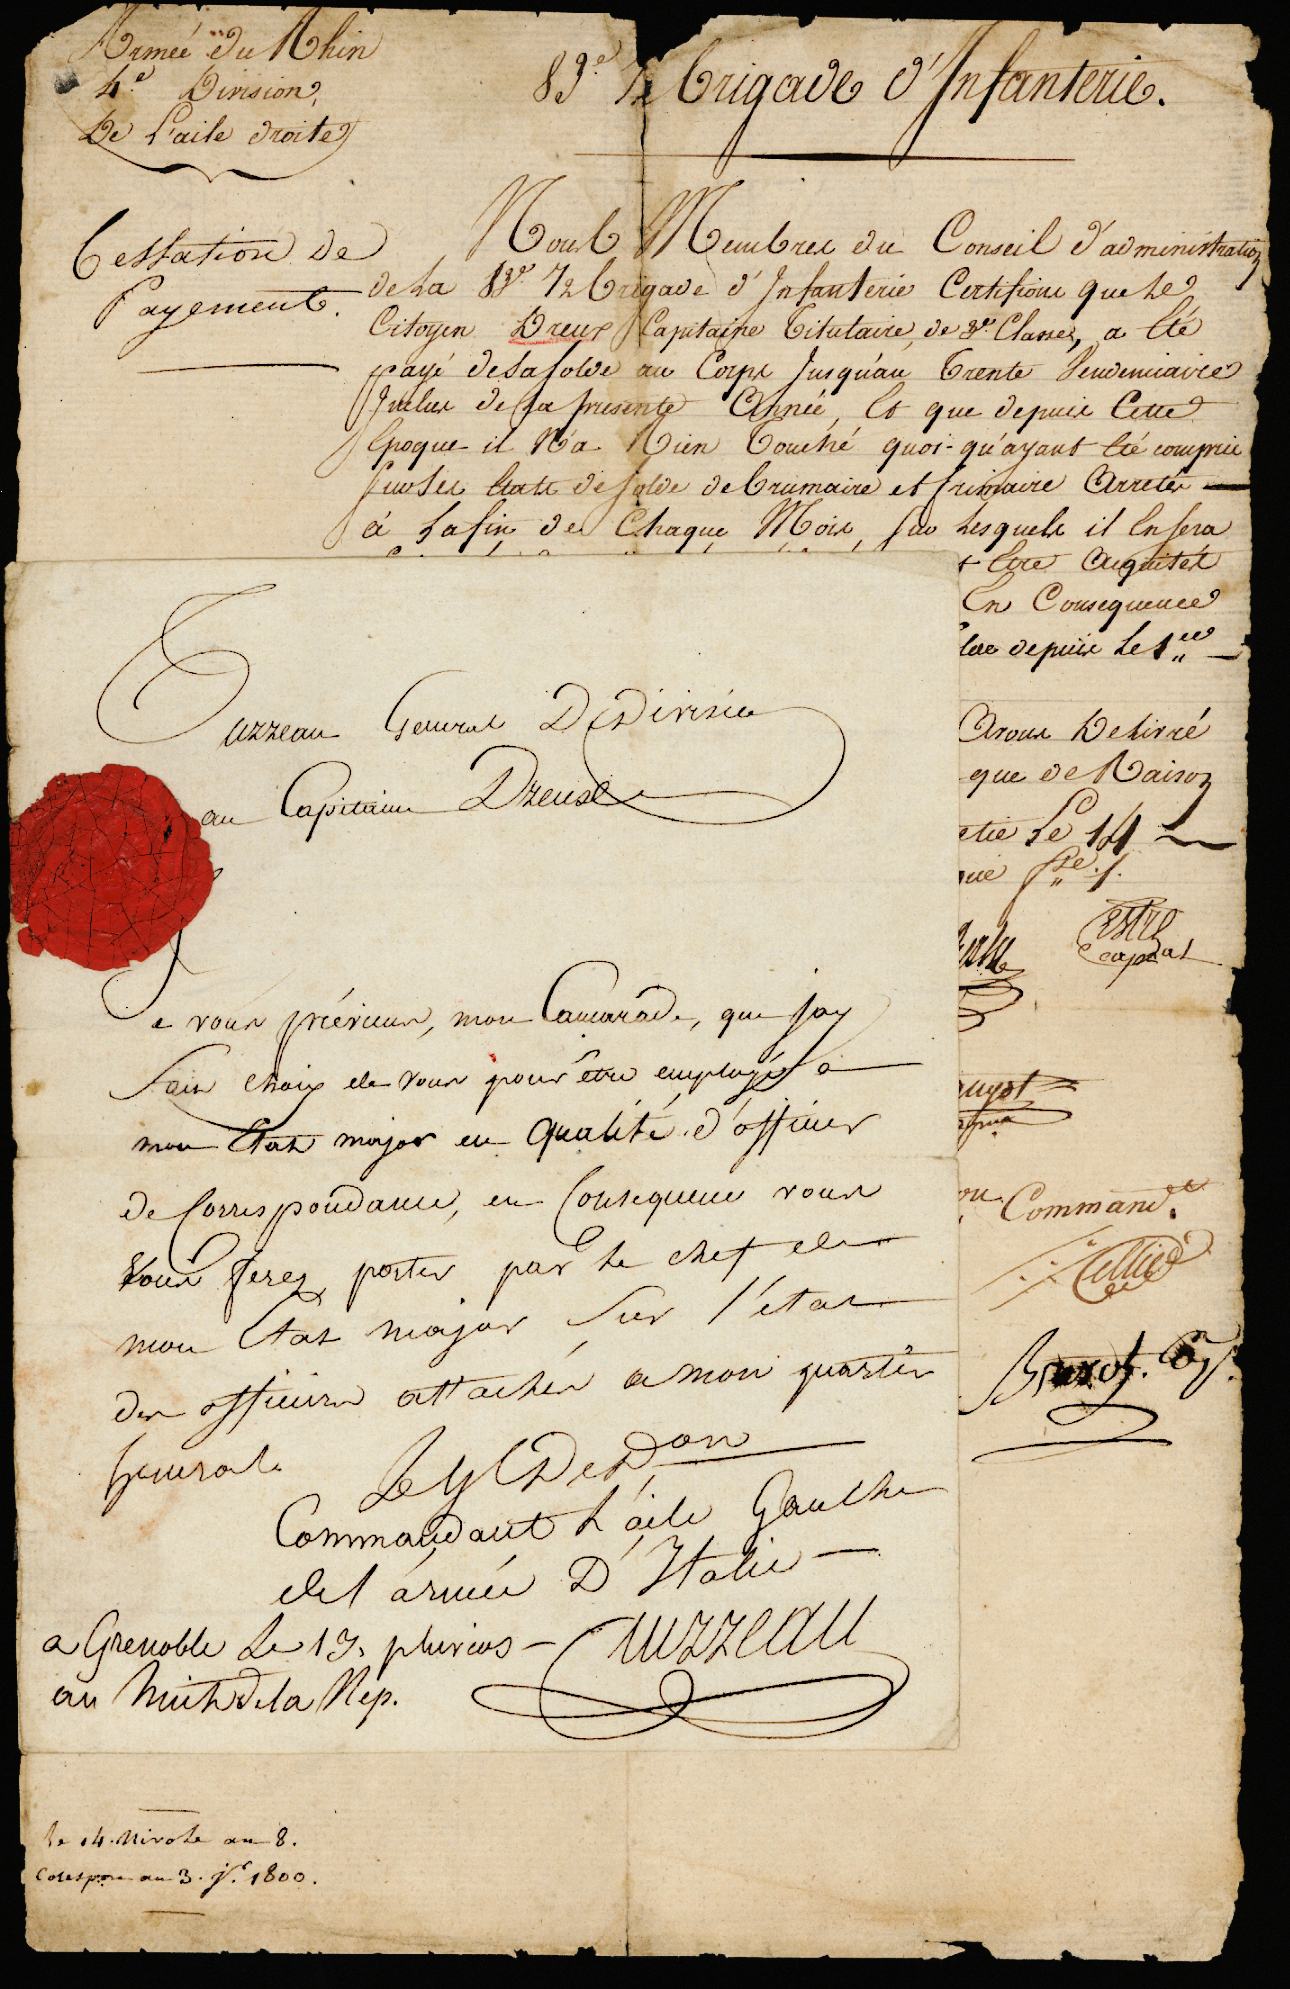 Armée du Rhin
4e Division
De L'aile droite
83e 1/2 brigade d'Infanterie.
Cessation de
Payement.
Nous Membres du Conseil d'administration
de La 83e 1/2 brigade d'Infanterie Certifions que Le
Citoyen Dreux Capitaine titulaire de 3e Classe, a été
payé de Sa Solde au Corps Jusqu'au trente Vendemiaire
Inclus de La presente Année, Et que depuis Cette
Epoque il N'a Rien Touché quoi-qu'ayant été compris
Sur Les Etats de Solde de brumaire et frimaire Arretés
à La fin de Chaque Mois, Sur Lesquels il En Sera
Etre Acquités
En Consequence
depuis Le 1er
Avons Delivré
que de Raison
Le 14
Command.t
Tuzzeau General De Division
au Capitaine Dreuse
Je vous préviens, mon Camarade, que jay
fait choix de vous pour être employé a
mon Etat major en qualité d'officier
de Correspondance, en Consequence vous
vous ferez porter par le chef de
mon Etat major Sur l'état
des officiers attachés a mon quartier
General
Le Gl De Don
Commandant L'aile Gauche
de l'armée D'Italie
a Grenoble Le 13 pluvios
an huit de la Rep.
le 14 Nivose an 8.
Corespon au 3. jr. 1800.